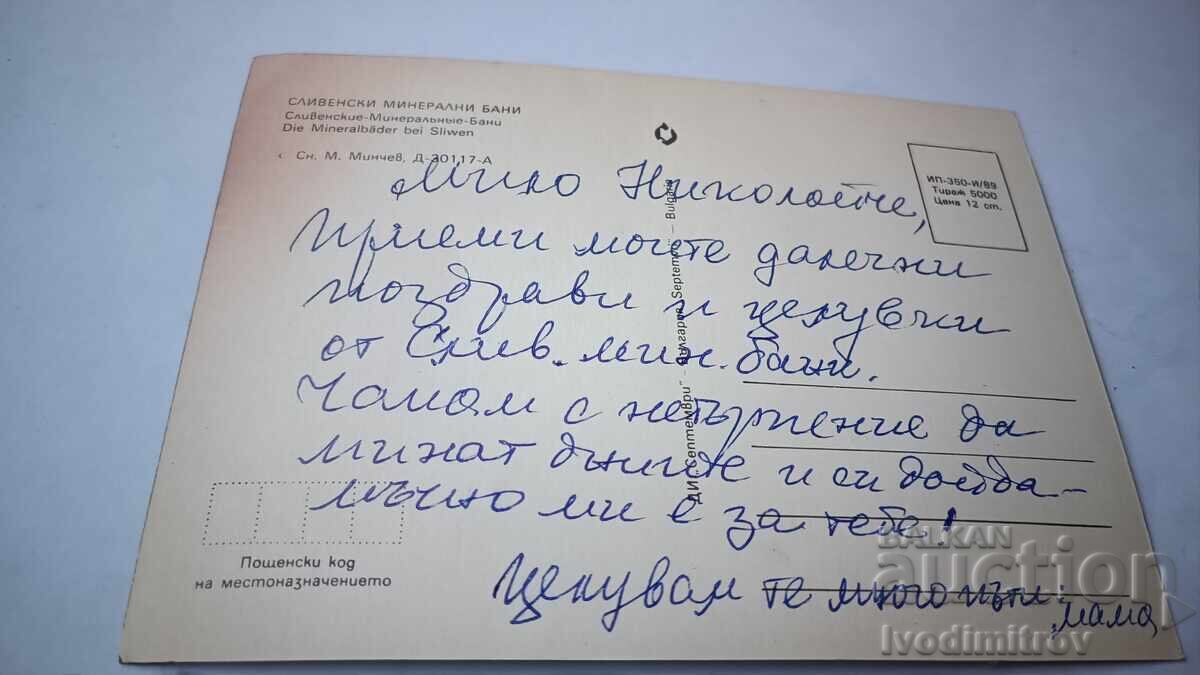 СЛИВЕНСКИ МИНЕРАЛНИ БАНИ
Сливенские-Минеральные-Бани
Die Mineralbäder bei Sliwen
Сн. М. Минчев, Д-30117-А
ИП-350-И/89
Тираж 5000
Цена 12 ст.
Мило Николайче,
Приеми моите далечни
поздрави и целувки
от Слив. мин. бани.
Чакам с нетърпение да
минат дните и си дойда -
мъчно ми е за тебе!
Целувам те много пъти:
мама
ДИ „Септември" – България, Septemvri – Bulgaria
Пощенски код
на местоназначението
BALKAN
auction
Ivodimitrov